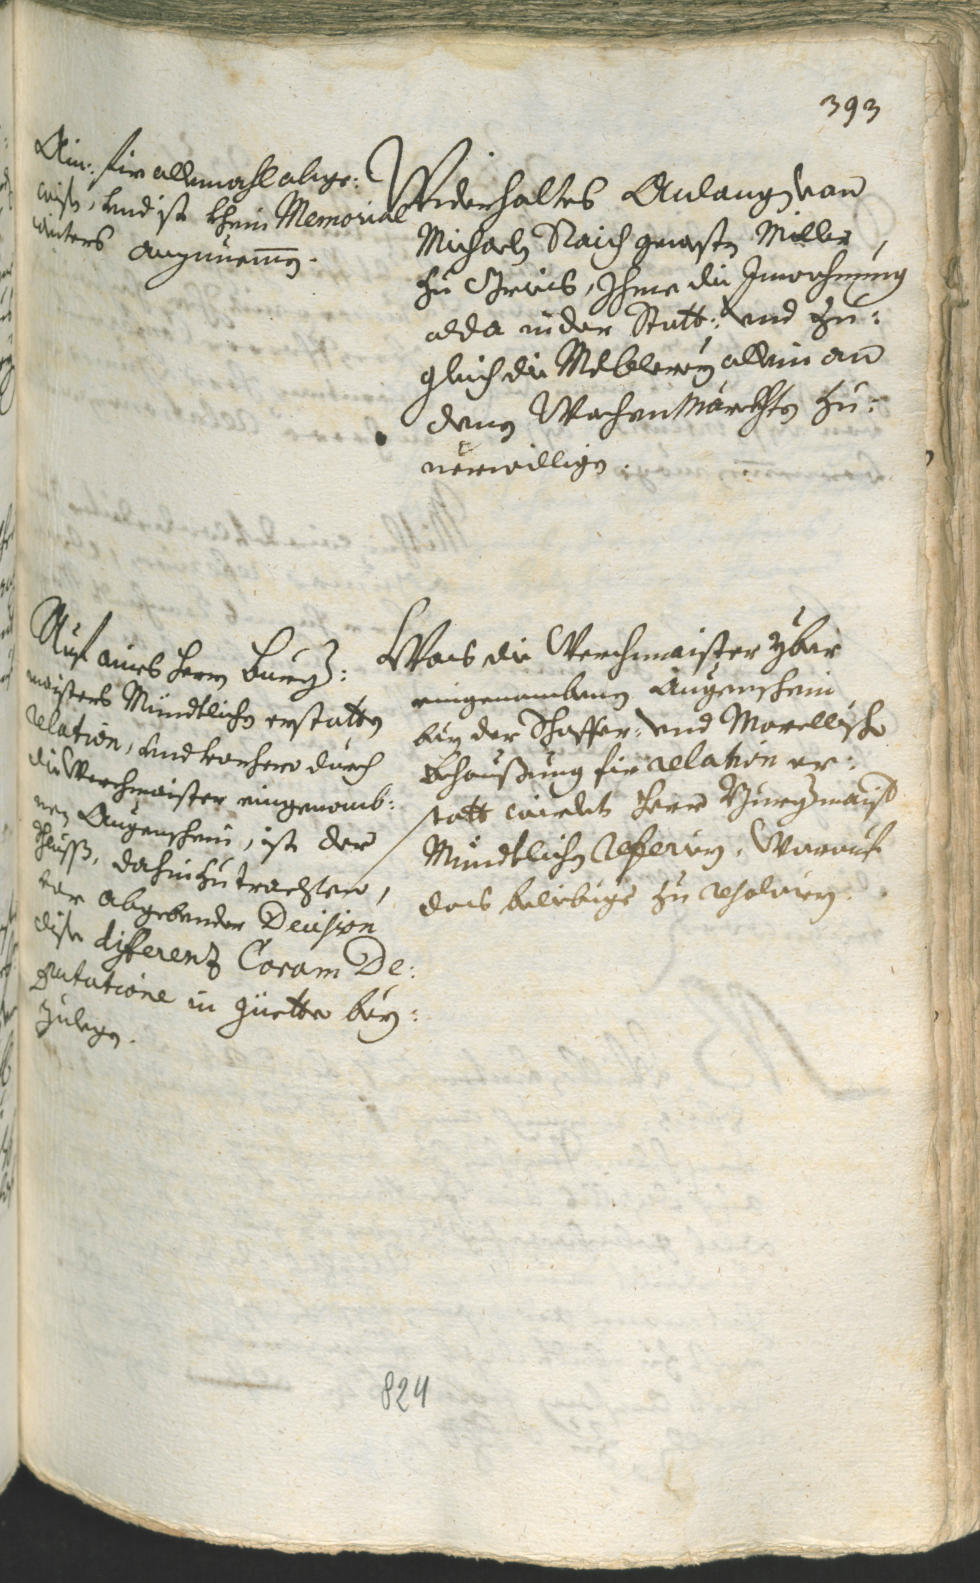 393
Ain: für allemahl abge:
wist, vnd ist khein Memorial
weiters anzunemen.
Widerholtes Anlangen von
Michaeln Raich gewesten Miller
zu Gries, Ihme die Inwohnung
alda in der Statt: vnd zu:
gleich die Melblerey allein an
denen Wochenmärckhten zu:
uerwilligen.
Auf aines Herrn Burg:
maisters Mündtlichen erstatten
relation, vnd vorhero durch
die Werchmaister eingenomb:
nen Augenschein, ist der
Schluss, dahin zutrachten,
vor abgebender Decision
dise differenz Coram De:
putatione in güette bey:
zulegen.
Was die Werchmaister yber
eingenombenen Augenschein
bey der Schaffer: vnd Morellische
Behausung für relation er:
statt wirdet Herr Burgermaist
Mündtlichen referiern. Worauf
das beliebige zu resoluiern.
824